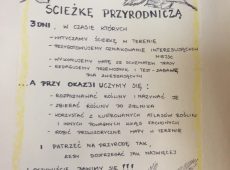 ŚCIEŻKĘ PRZYRODNICZĄ
3 DNI W CZASIE KTÓRYCH
- WYTYCZAMY ŚCIEŻKĘ W TERENIE
- PRZYGOTOWUJEMY OZNAKOWANIE INTERESUJĄCYCH MIEJSC
- WYKONUJEMY MAPĘ ZE SCHEMATEM TRASY
- REDAGUJEMY PRZEWODNIK I TEST-ZABAWĘ
DLA ZWIEDZAJĄCYCH
...A PRZY OKAZJI UCZYMY SIĘ:
- ROZPOZNAWAĆ ROŚLINY I NAZYWAĆ JE
- ZBIERAĆ ROŚLINY DO ZIELNIKA
- KORZYSTAĆ Z KLUCZOWANYCH ATLASÓW ROŚLIN
I INNYCH POWAŻNYCH
- ROBIĆ PRAWDZIWE MAPY W TERENIE
I PATRZEĆ NA PRZYRODĘ TAK,
ŻEBY DOSTRZEGAĆ JAK NAJWIĘCEJ